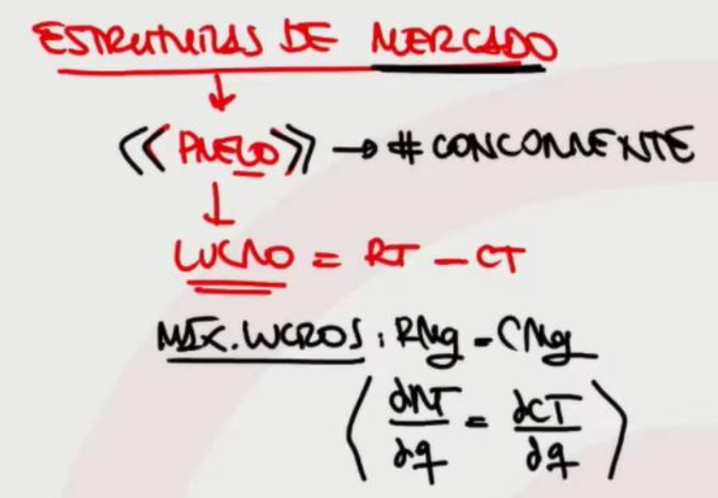 ESTRUTURAS DE MERCADO
↓
<< PREÇO >> → # CONCORRENTE
↓
LUCRO = RT - CT
MÁX. LUCROS : RMg = CMg
⟨ dRT/dq = dCT/dq ⟩